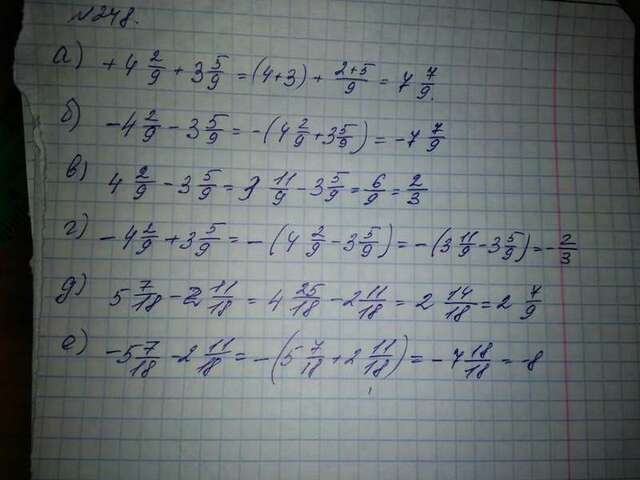 №248.
а) +4 2/9 + 3 5/9 = (4+3) + (2+5)/9 = 7 7/9.
б) -4 2/9 - 3 5/9 = -(4 2/9 + 3 5/9) = -7 7/9
в) 4 2/9 - 3 5/9 = 3 11/9 - 3 5/9 = 6/9 = 2/3
г) -4 2/9 + 3 5/9 = -(4 2/9 - 3 5/9) = -(3 11/9 - 3 5/9) = -2/3
д) 5 7/18 - 2 11/18 = 4 25/18 - 2 11/18 = 2 14/18 = 2 7/9
е) -5 7/18 - 2 11/18 = -(5 7/18 + 2 11/18) = -7 18/18 = -8